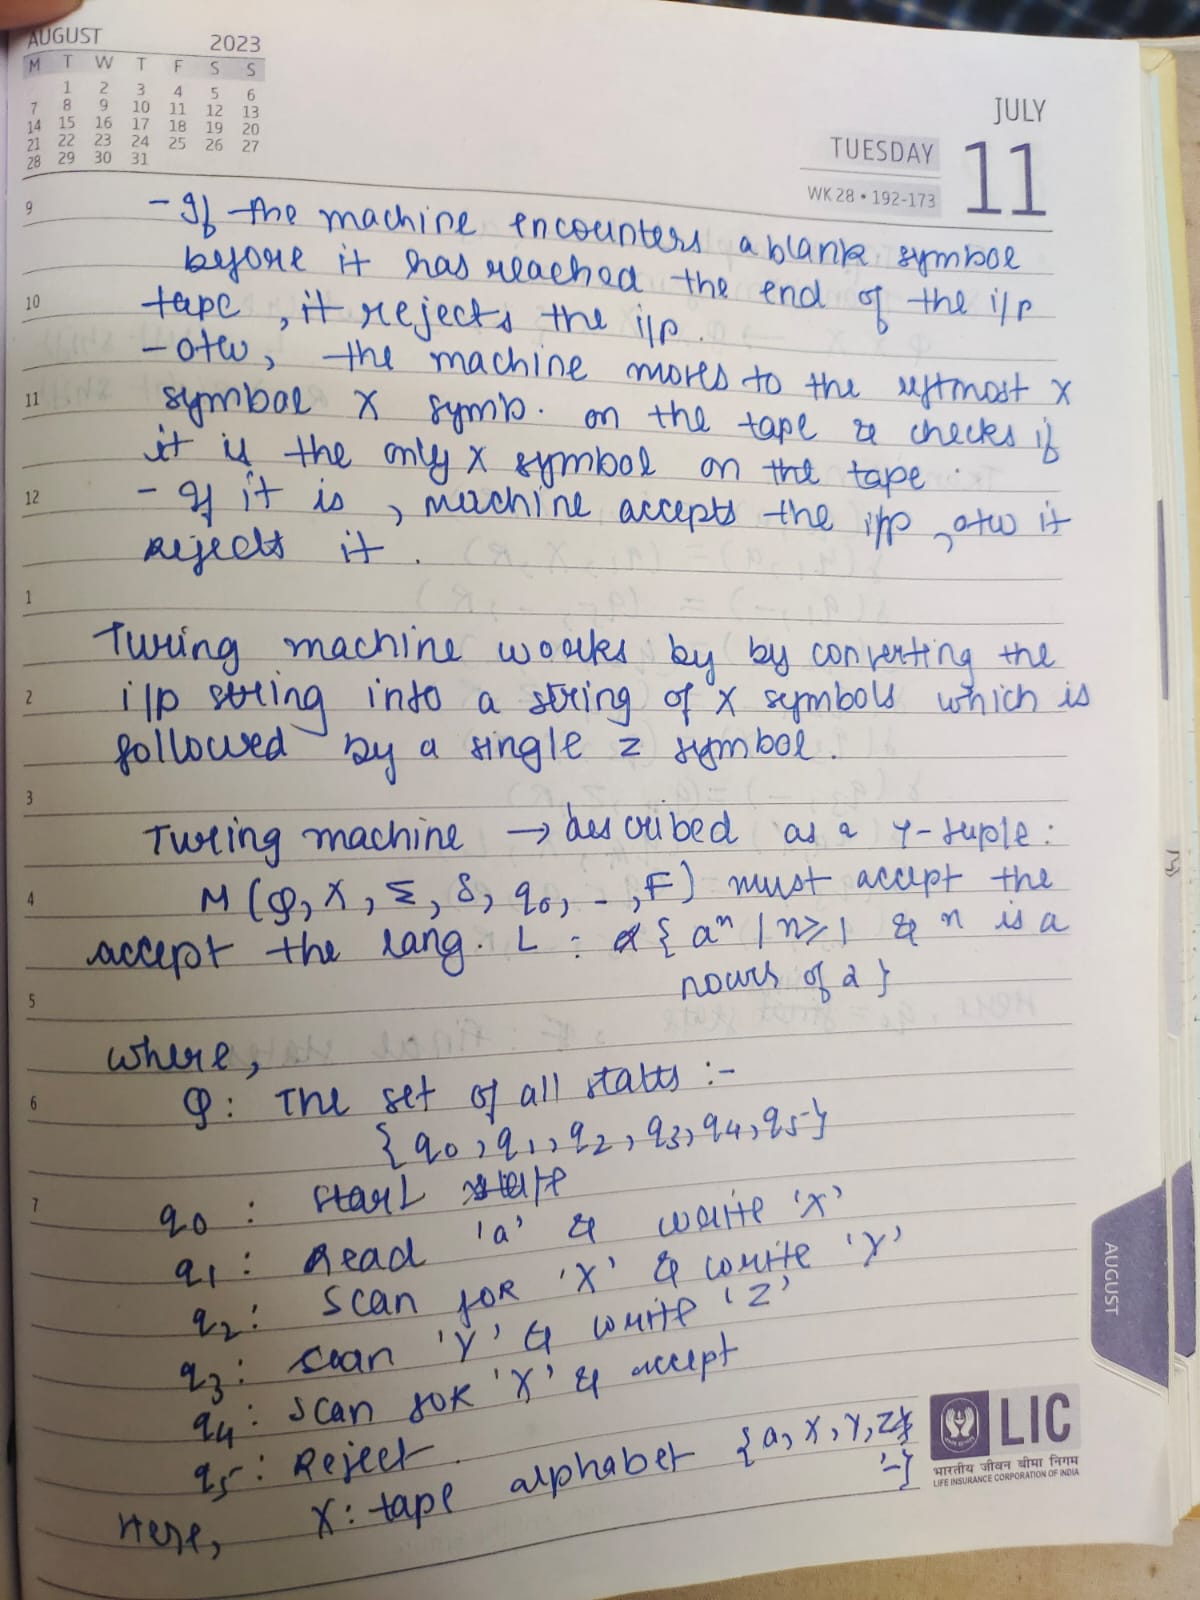 AUGUST 2023
M T W T F S S
1 2 3 4 5 6
7 8 9 10 11 12 13
14 15 16 17 18 19 20
21 22 23 24 25 26 27
28 29 30 31
JULY
TUESDAY 11
WK 28 • 192-173
9 - If the machine encounters a blank symbol
before it has reached the end of the i/p
10 tape, it rejects the i/p.
- otw, the machine moves to the leftmost X
11 symbol X symb. on the tape & checks if
it is the only X symbol on the tape.
12 - If it is, machine accepts the i/p, otw it
rejects it.
1
Turing machine works by by converting the
2 i/p string into a string of X symbols which is
followed by a single Z symbol.
3
Turing machine → described as a 7-tuple:
4 M (Q, X, Σ, δ, q0, -, F) must accept the
accept the lang. L = { a^n | n≥1 & n is a
5 powrs of 2 }
where,
6 Q: The set of all states :-
{ q0, q1, q2, q3, q4, q5 }
7 q0 : start state
q1 : Read 'a' & write 'X'
q2 : Scan for 'X' & write 'Y'
q3 : Scan 'Y' & write 'Z'
q4 : Scan for 'X' & accept
q5 : Reject.
Here, X : tape alphabet {a, X, Y, Z,
'-}
AUGUST
LIC
भारतीय जीवन बीमा निगम
LIFE INSURANCE CORPORATION OF INDIA